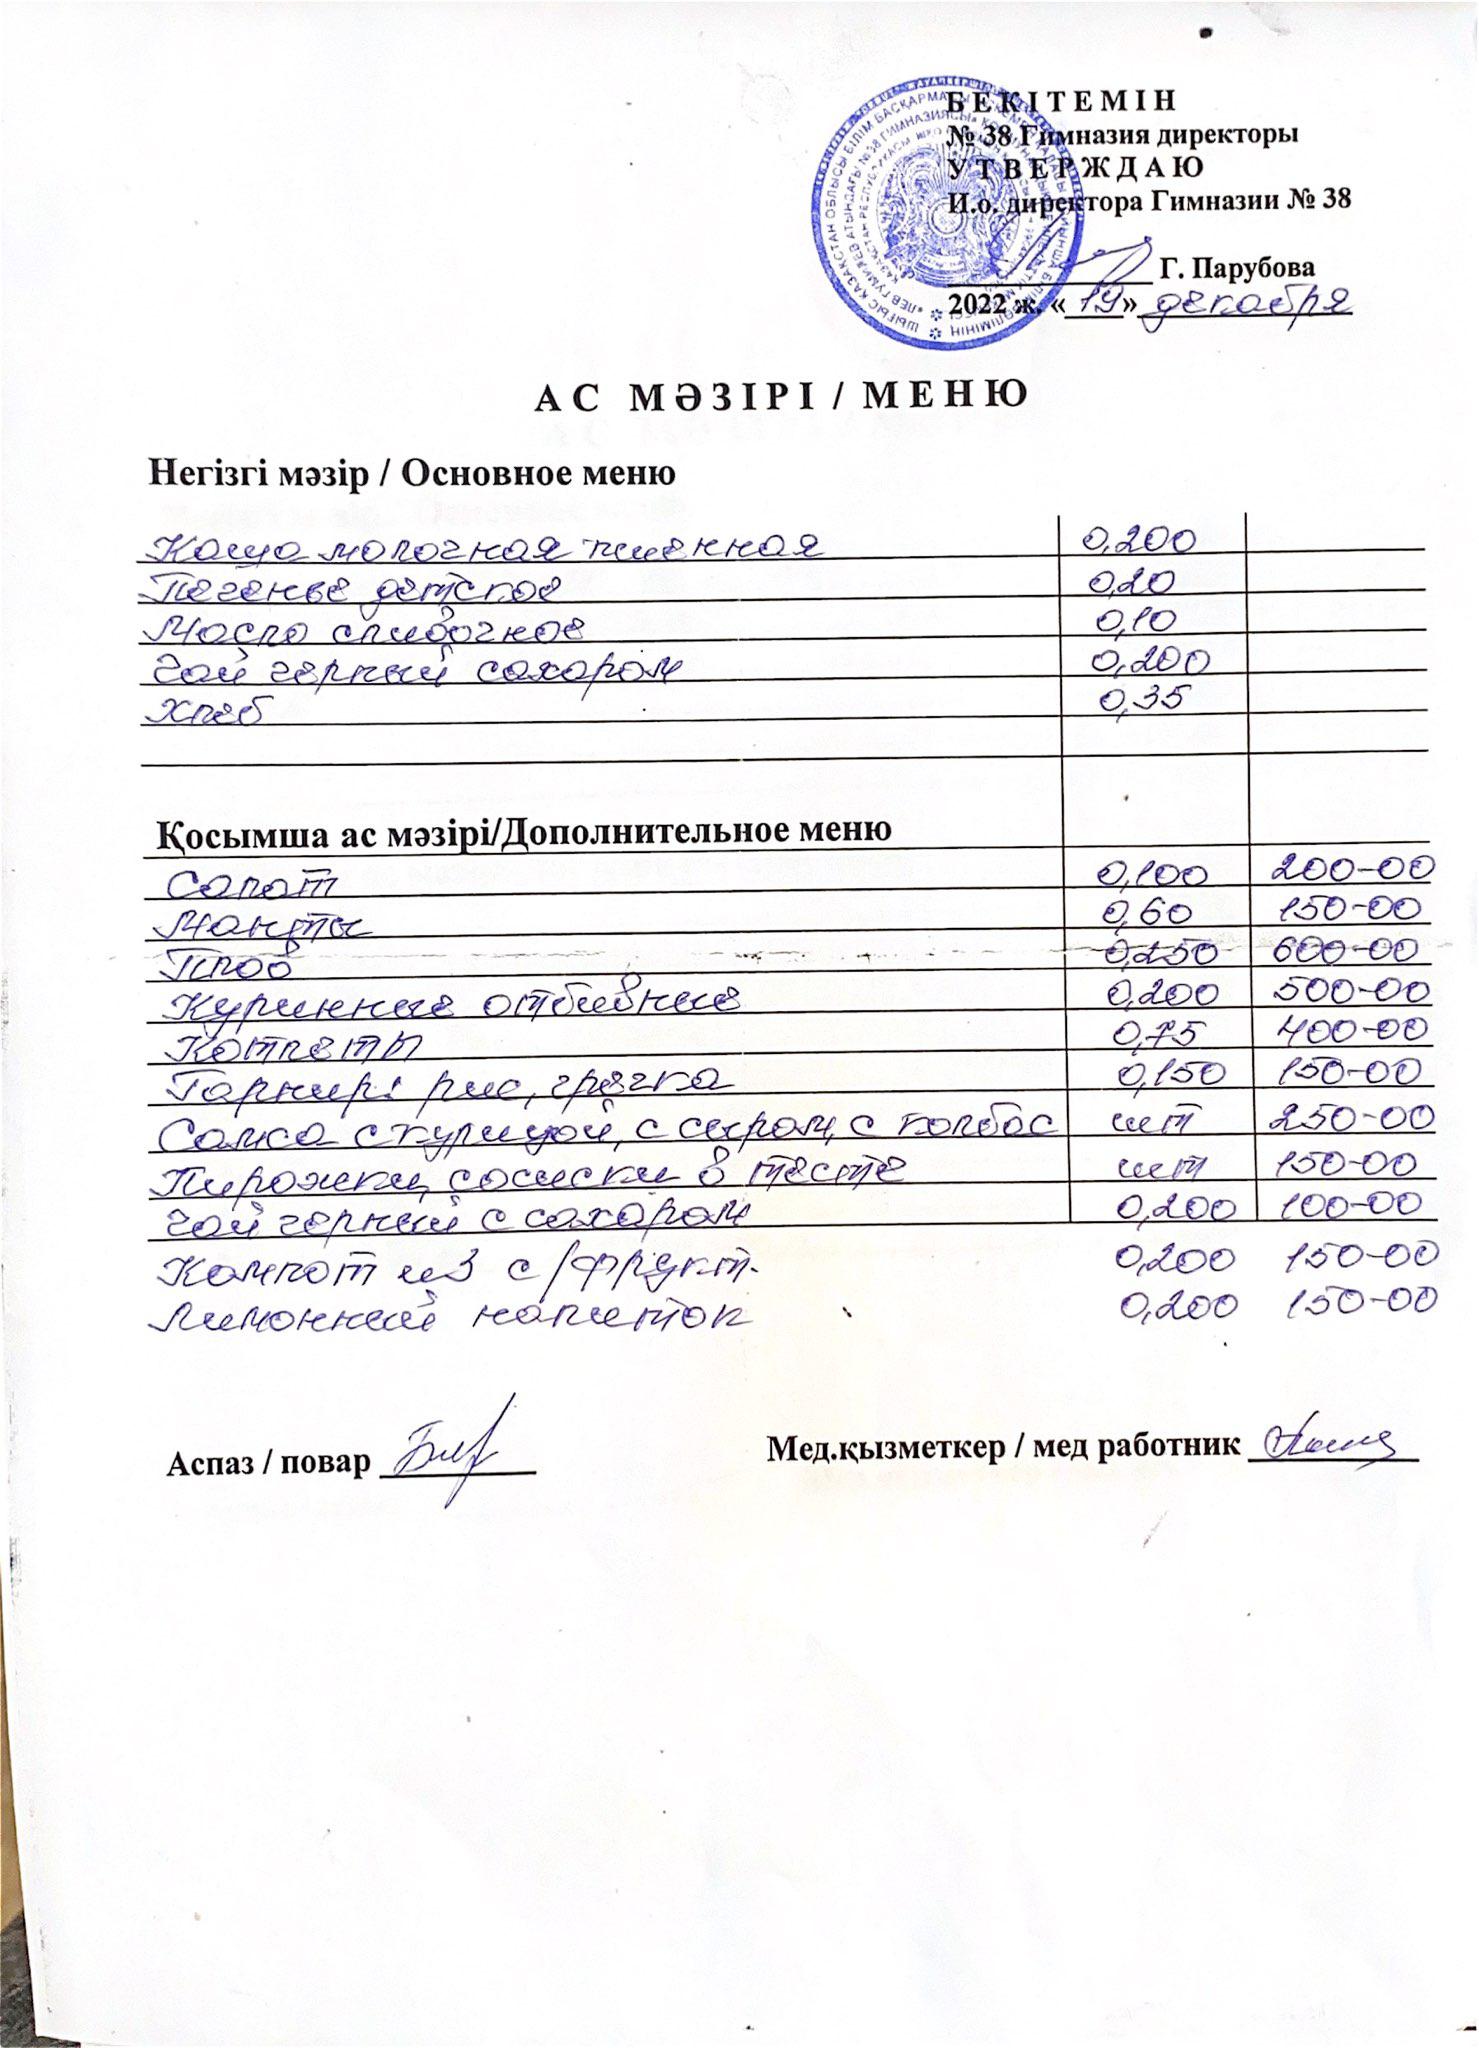 БЕКІТЕМІН
№ 38 Гимназия директоры
УТВЕРЖДАЮ
И.о. директора Гимназии № 38
Г. Парубова
2022 ж. «19» декабря
АС МӘЗІРІ / МЕНЮ
Негізгі мәзір / Основное меню
Каша молочная пшенная 0,200
Печенье детское 0,20
Масло сливочное 0,10
Чай черный сахаром 0,200
Хлеб 0,35
Қосымша ас мәзірі/Дополнительное меню
Салат 0,100 200-00
Манты 0,60 150-00
Плов 0,250 600-00
Куринные отбивные 0,200 500-00
Котлеты 0,75 400-00
Гарнир: рис, гречка 0,150 150-00
Самса с курицей, с сыром, с колбас шт 250-00
Пирожки, сосиски в тесте шт 150-00
Чай черный с сахаром 0,200 100-00
Компот из с/фрукт. 0,200 150-00
Лимонный напиток 0,200 150-00
Аспаз / повар Мед.қызметкер / мед работник